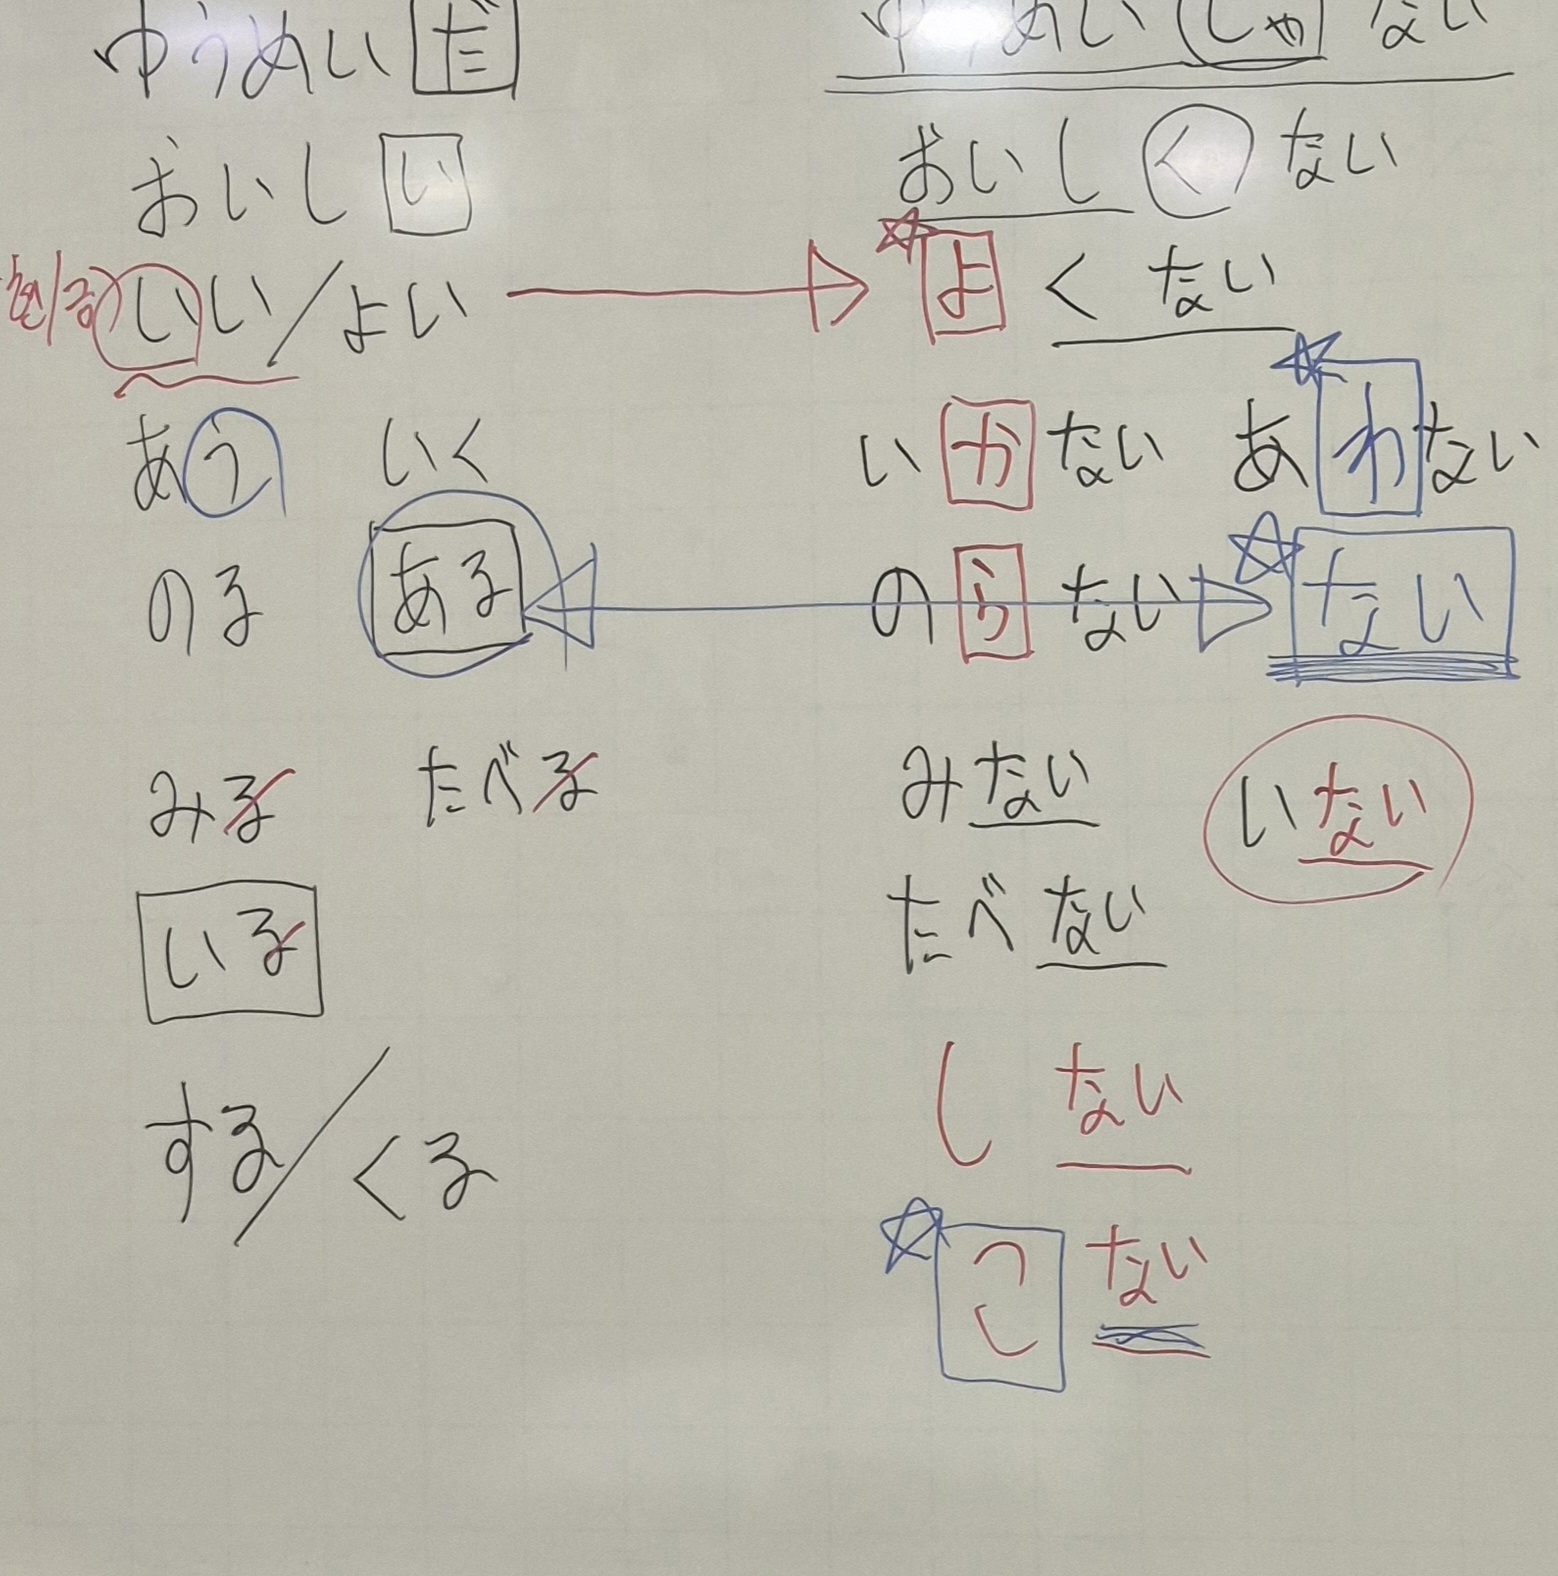 ゆうめいだ ゆうめいじゃない
おいしい おいしくない
いい/よい よくない
あう いく いかない あわない
のる ある のらない ない
みる たべる みない いない
いる たべない
する/くる しない
こない